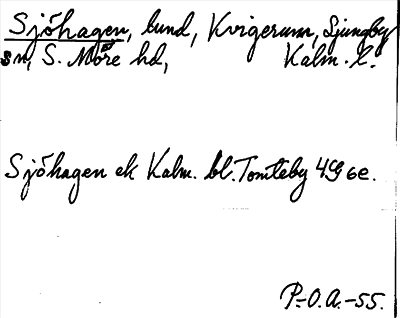 Sjöhagen, lund, Kvigerum, Ljungby
sn, S. Möre hd, Kalm. l.
Sjöhagen ek Kalm. bl. Tomteby 4G 6e.
P.-O.A.-55.